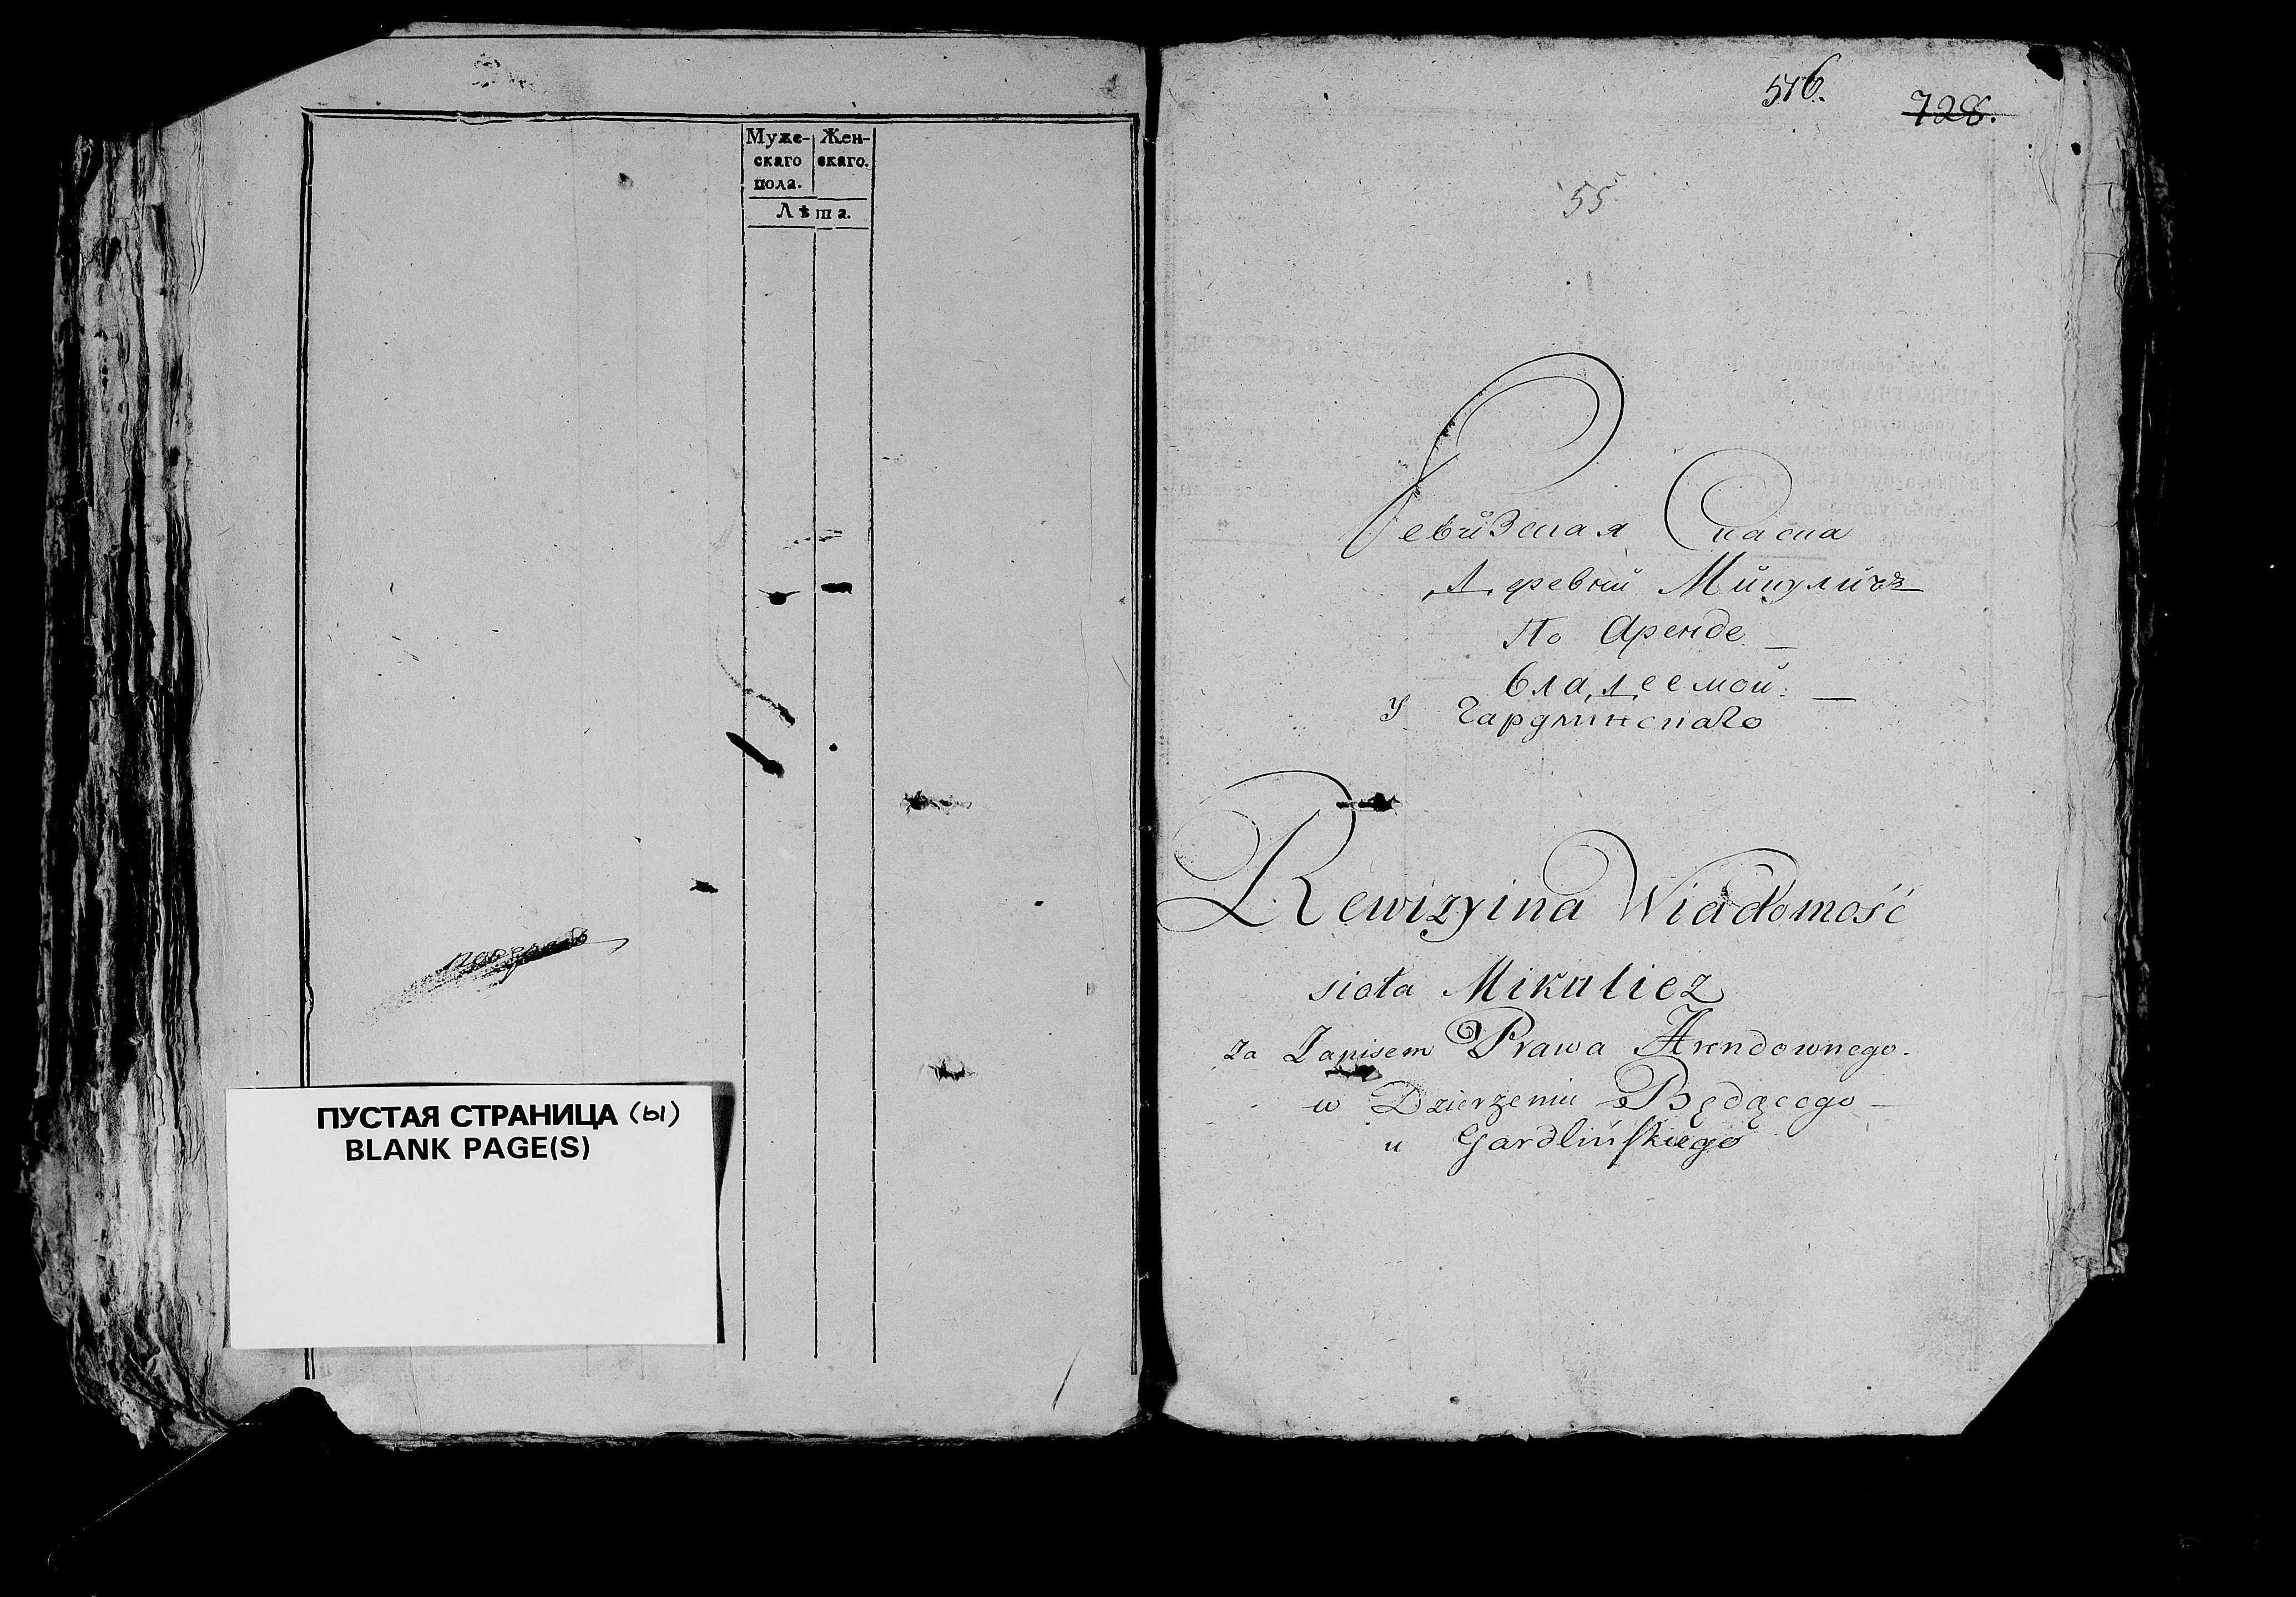 Муже- Жен-
скаго скаго.
пола.
Лѣта.
ПУСТАЯ СТРАНИЦА (ы)
BLANK PAGE(S)
516.
728.
55
Ревизская Сказка
деревни Микуличъ
По Аренде
владеемой
У Гардлинскаго
Rewizyina Wiadomość
sioła Mikulicz
za Zapisem Prawa Arendownego
w Dzierzeniu Będącego
u Gardlińskiego